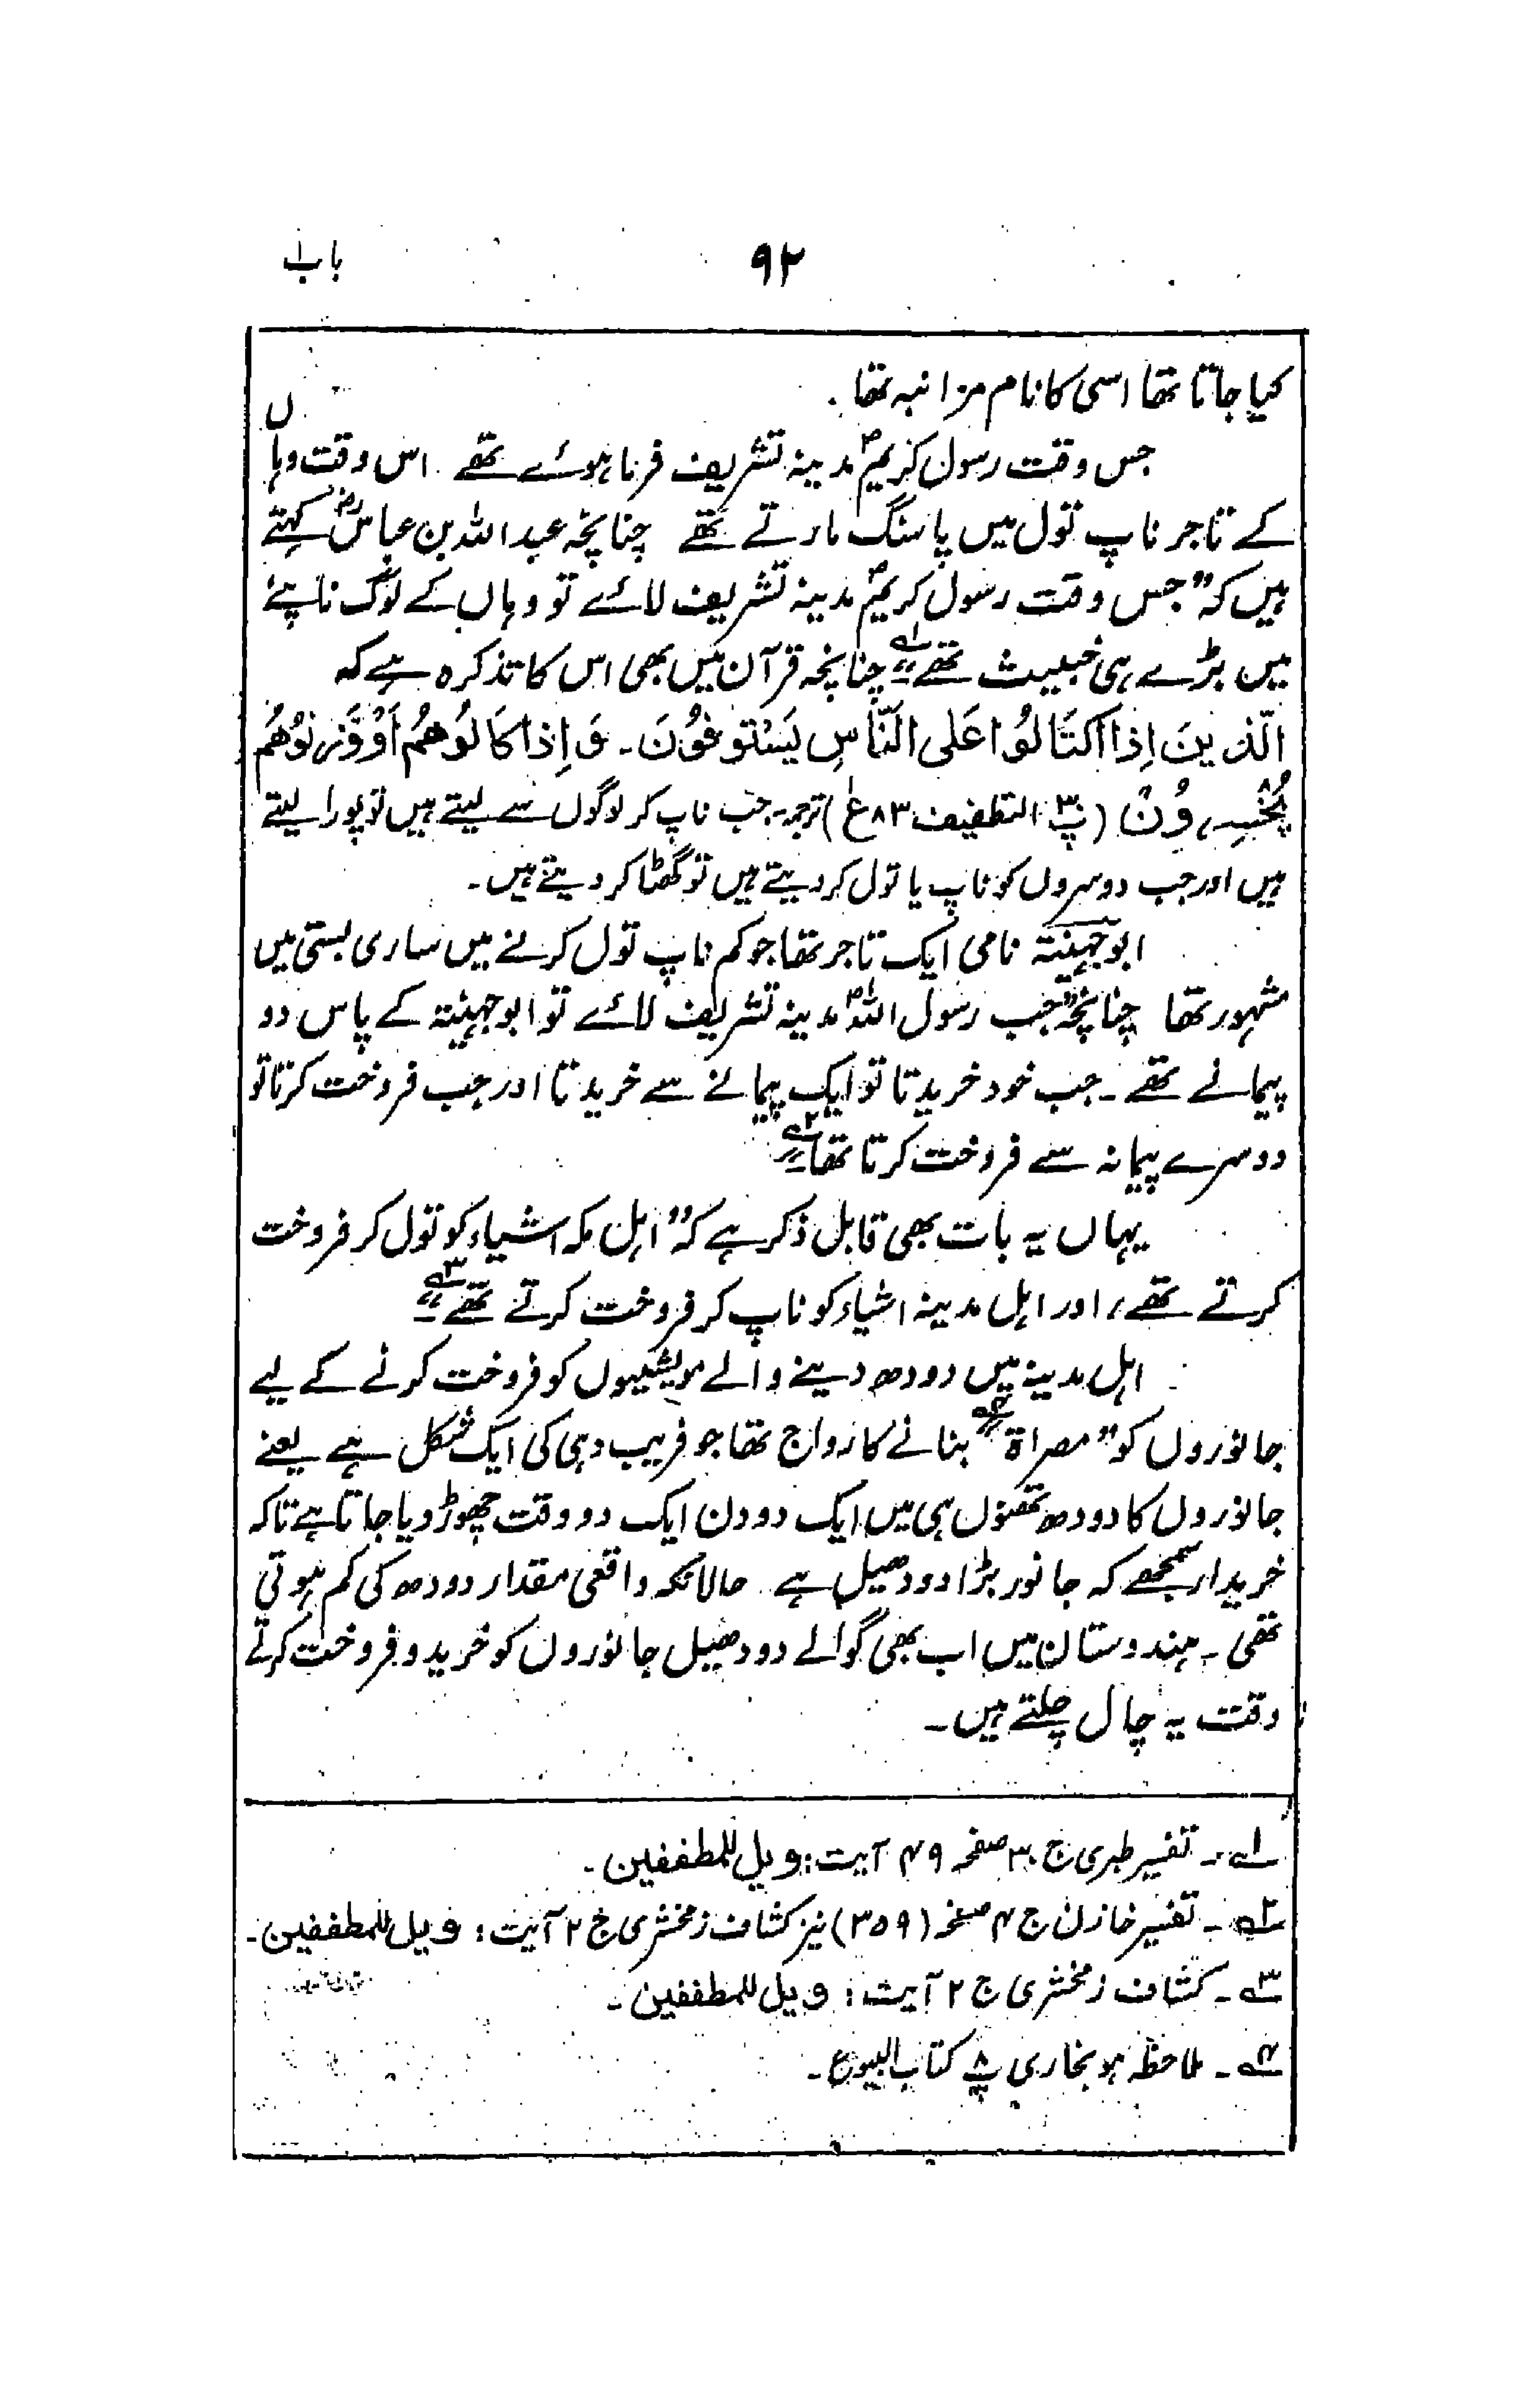 باب ۱
۹۲
کیا جاتا تھا اسی کا نام مزابنہ تھا۔
جس وقت رسول کریمؐ مدینہ تشریف فرما ہوئے تھے۔ اس وقت وہاں
کے تاجر ناپ تول میں پاسنگ مارتے تھے چنانچہ عبداللہ بن عباسؓ کہتے
ہیں کہ ”جس وقت رسول کریمؐ مدینہ تشریف لائے تو وہاں کے لوگ ناپنے
میں بڑے ہی خبیث تھے“۱؎ چنانچہ قرآن میں بھی اس کا تذکرہ ہے کہ
الَّذِينَ اِذَا اكْتَالُوْا عَلَى النَّاسِ يَسْتَوْفُوْنَ۔ وَ اِذَا كَالُوْهُمْ اَوْ وَّزَنُوْهُمْ
يُخْسِرُوْنَ (پ۳۰ التطفیف ۸۳ ع۱) ترجمہ۔ جب ناپ کر لوگوں سے لیتے ہیں تو پورا لیتے
ہیں اور جب دوسروں کو ناپ یا تول کر دیتے ہیں تو گھٹا کر دیتے ہیں۔
ابوجہینۃ نامی ایک تاجر تھا جو کم ناپ تول کرنے میں ساری بستی میں
مشہور تھا چنانچہ ”جب رسول اللہؐ مدینہ تشریف لائے تو ابوجہینۃ کے پاس دو
پیمانے تھے۔ جب خود خریدتا تو ایک پیمانے سے خریدتا اور جب فروخت کرتا تو
دوسرے پیمانہ سے فروخت کرتا تھا“۲؎
یہاں یہ بات بھی قابل ذکر ہے کہ ”اہل مکہ اشیاء کو تول کر فروخت
کرتے تھے، اور اہل مدینہ اشیاء کو ناپ کر فروخت کرتے تھے“۳؎
اہل مدینہ میں دودھ دینے والے مویشیوں کو فروخت کرنے کے لیے
جانوروں کو ”مصراۃ“۴؎ بنانے کا رواج تھا جو فریب دہی کی ایک شکل ہے یعنے
جانوروں کا دودھ تھنوں ہی میں ایک دو دن ایک دو وقت چھوڑ دیا جاتا ہے تاکہ
خریدار سمجھے کہ جانور بڑا دودھیل ہے۔ حالانکہ واقعی مقدار دودھ کی کم ہوتی
تھی۔ ہندوستان میں اب بھی گوالے دودھیل جانوروں کو خرید و فروخت کرتے
وقت یہ چال چلتے ہیں۔
۱؎۔ تفسیر طبری ج ۳۰ صفحہ ۴۹ آیت: ویل للمطففین۔
۲؎۔ تفسیر خازن ج ۴ صفحہ (۳۵۹) نیز کشاف زمخشری ج ۲ آیت: ویل للمطففین۔
۳؎۔ کشاف زمخشری ج ۲ آیت: ویل للمطففین۔
۴؎۔ ملاحظہ ہو بخاری پ۸ کتاب البیوع۔